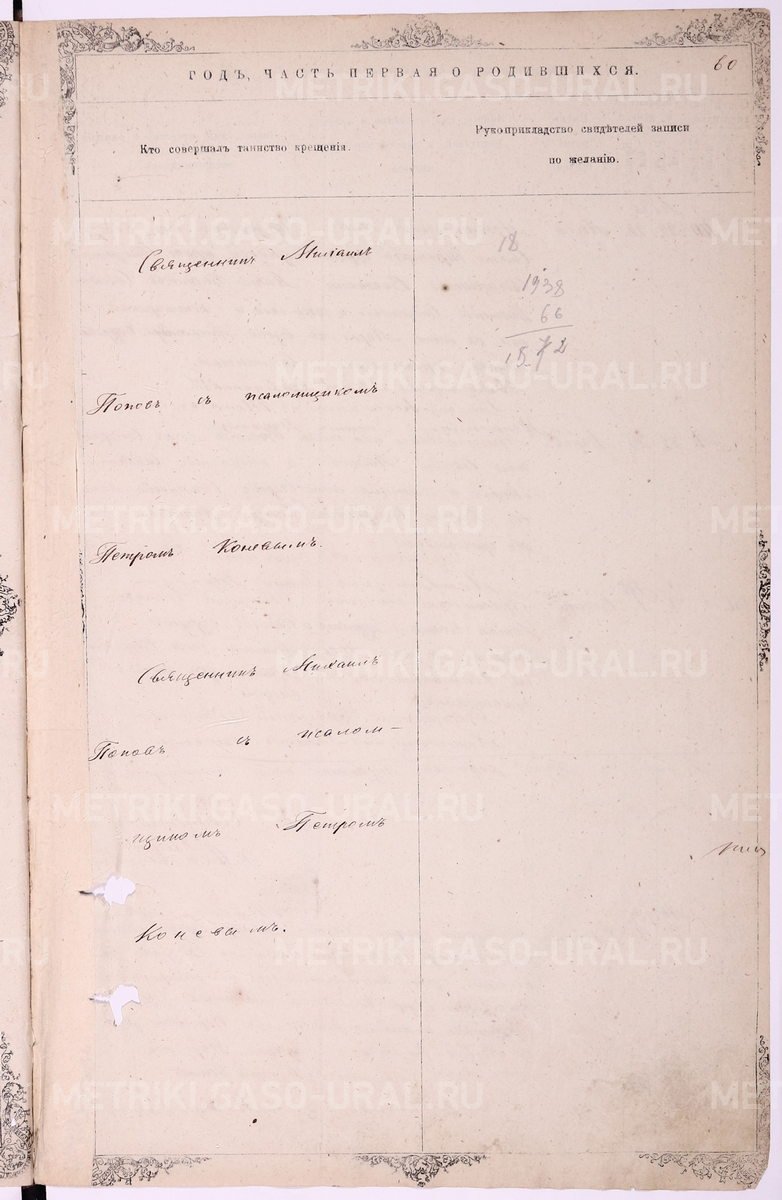 60
ГОДЪ, ЧАСТЬ ПЕРВАЯ О РОДИВШИХСЯ.
Кто совершалъ таинство крещенія.
Рукоприкладство свидѣтелей записи
по желанію.
Священникъ Михаилъ
Поповъ съ псаломщикомъ
Петромъ Коневымъ.
Священникъ Михаилъ
Поповъ съ псалом-
щикомъ Петромъ
Коневымъ.
18
1938
66
METRIKI.GASO-URAL.RU